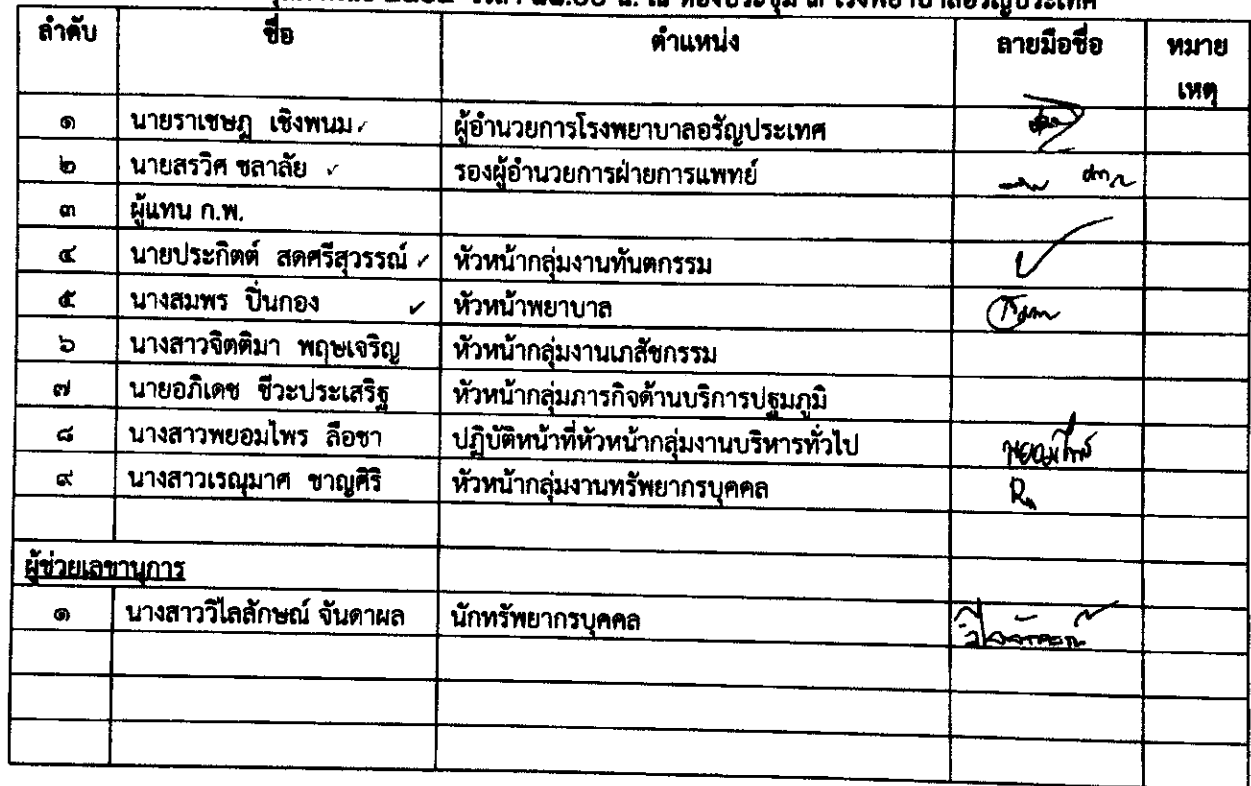 น. ณ ห้องประชุม ๓ โรงพยาบาลอรัญประเทศ
ลำดับ ชื่อ ตำแหน่ง ลายมือชื่อ หมาย
เหตุ
๑ นายราเชษฎ เชิงพนม ผู้อำนวยการโรงพยาบาลอรัญประเทศ
๒ นายสรวิศ ชลาลัย รองผู้อำนวยการฝ่ายการแพทย์
๓ ผู้แทน ก.พ.
๔ นายประกิตต์ สดศรีสุวรรณ์ หัวหน้ากลุ่มงานทันตกรรม
๕ นางสมพร ปิ่นกอง หัวหน้าพยาบาล
๖ นางสาวจิตติมา พฤษเจริญ หัวหน้ากลุ่มงานเภสัชกรรม
๗ นายอภิเดช ชีวะประเสริฐ หัวหน้ากลุ่มภารกิจด้านบริการปฐมภูมิ
๘ นางสาวพยอมไพร ลือชา ปฏิบัติหน้าที่หัวหน้ากลุ่มงานบริหารทั่วไป พยอมไพร
๙ นางสาวเรณุมาศ ชาญศิริ หัวหน้ากลุ่มงานทรัพยากรบุคคล
ผู้ช่วยเลขานุการ
๑ นางสาววิไลลักษณ์ จันดาผล นักทรัพยากรบุคคล